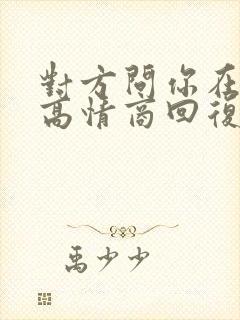 對方問你在
高情商回復
禹少少